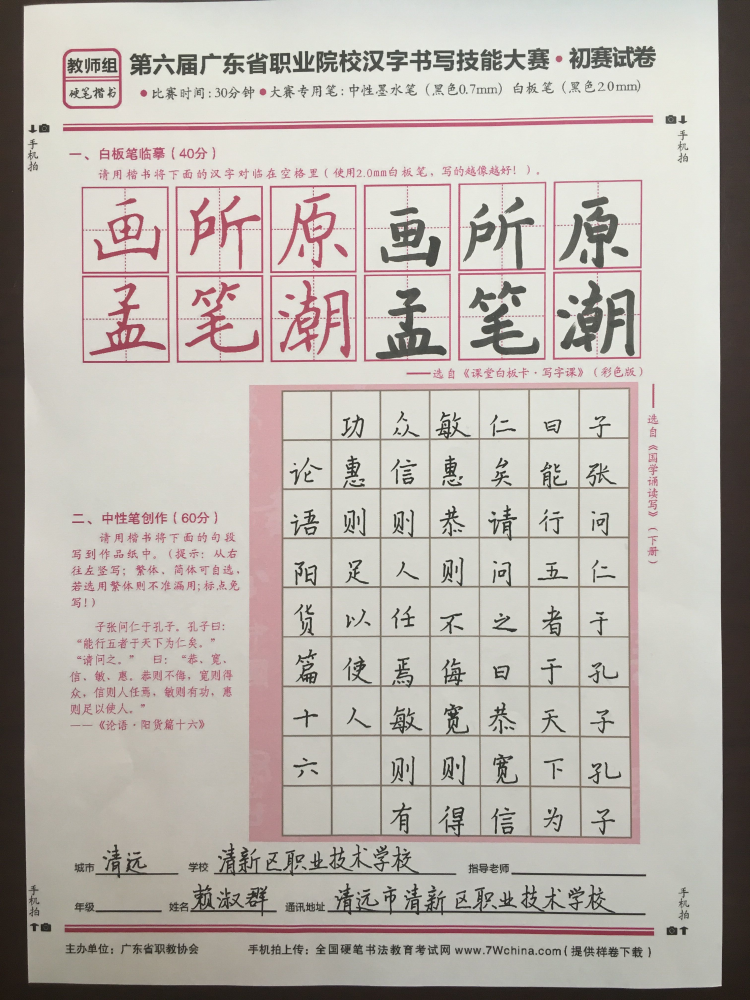 教师组
硬笔楷书
第六届广东省职业院校汉字书写技能大赛·初赛试卷
●比赛时间:30分钟●大赛专用笔:中性墨水笔(黑色0.7mm) 白板笔(黑色2.0mm)
手机拍
手机拍
一、白板笔临摹(40分)
请用楷书将下面的汉字对临在空格里(使用2.0mm白板笔,写的越像越好!)。
画所原画所原
孟笔潮孟笔潮
——选自《课堂白板卡·写字课》(彩色版)
——选自《国学诵读写》(下册)
子张问仁于孔子孔子
曰能行五者于天下为
仁矣请问之曰恭宽信
敏惠恭则不侮宽则得
众信则人任焉敏则有
功惠则足以使人
论语阳货篇十六
二、中性笔创作(60分)
请用楷书将下面的句段
写到作品纸中。(提示:从右
往左竖写;繁体、简体可自选,
若选用繁体则不准漏用;标点免
写!)
子张问仁于孔子。孔子曰:
“能行五者于天下为仁矣。”
“请问之。” 曰:“恭、宽、
信、敏、惠。恭则不侮,宽则得
众,信则人任焉,敏则有功,惠
则足以使人。”
——《论语·阳货篇十六》
城市 清远 学校 清新区职业技术学校 指导老师
年级 姓名 赖淑群 通讯地址 清远市清新区职业技术学校
手机拍
手机拍
主办单位:广东省职教协会 手机拍上传:全国硬笔书法教育考试网 www.7Wchina.com(提供样卷下载)